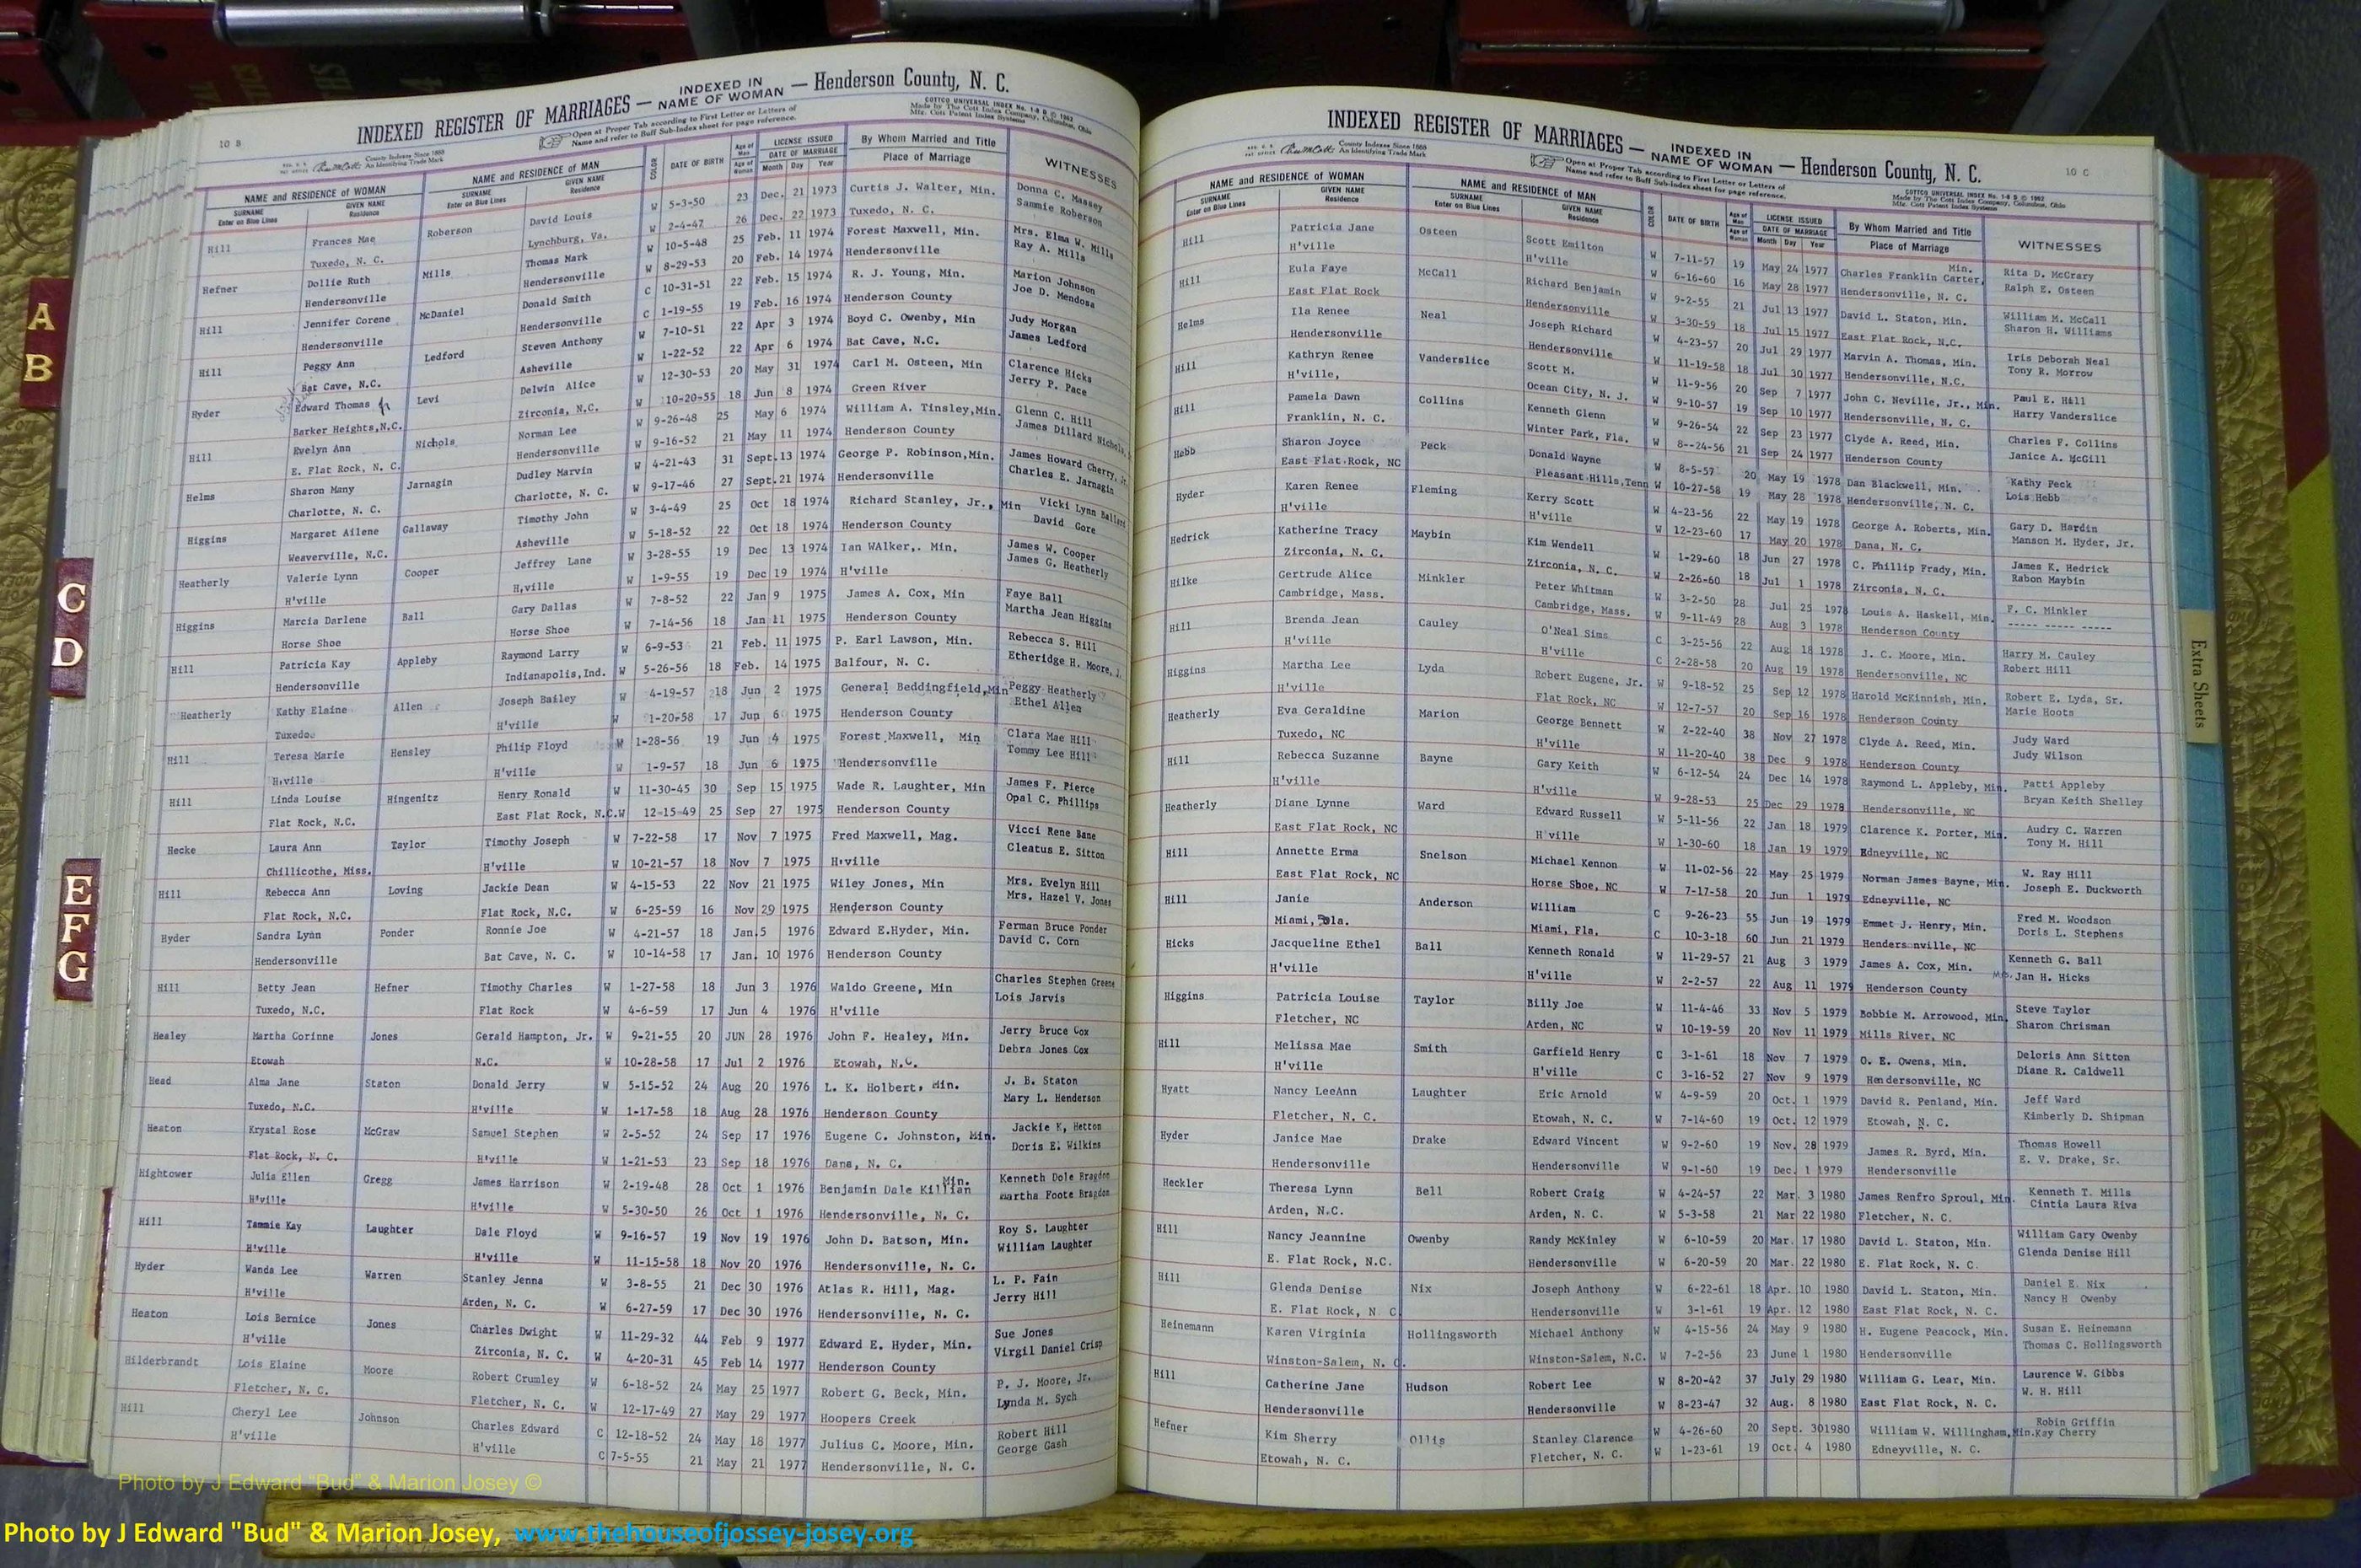 10 B
INDEXED REGISTER OF MARRIAGES — INDEXED IN NAME OF WOMAN — Henderson County, N. C.
Open at Proper Tab according to First Letter or Letters of
Name and refer to Buff Sub-Index sheet for page reference.
COTTCO UNIVERSAL INDEX No. 1-8 B © 1962
Made by The Cott Index Company, Columbus, Ohio
Mfr. Cott Patent Index Systems
County Indexes Since 1888
An Identifying Trade Mark
NAME and RESIDENCE of WOMAN NAME and RESIDENCE of MAN COLOR DATE OF BIRTH Age of Man LICENSE ISSUED By Whom Married and Title WITNESSES
SURNAME Enter on Blue Lines GIVEN NAME Residence SURNAME Enter on Blue Lines GIVEN NAME Residence Age of Woman DATE OF MARRIAGE Month Day Year Place of Marriage
Hill Frances Mae Roberson David Louis W 5-3-50 23 Dec. 21 1973 Curtis J. Walter, Min. Donna C. Massey
Tuxedo, N. C. Lynchburg, Va. W 2-4-47 26 Dec. 22 1973 Tuxedo, N. C. Sammie Roberson
Hefner Dollie Ruth Mills Thomas Mark W 10-5-48 25 Feb. 11 1974 Forest Maxwell, Min. Mrs. Elma W. Mills
Hendersonville Hendersonville W 8-29-53 20 Feb. 14 1974 Hendersonville Ray A. Mills
Hill Jennifer Corene McDaniel Donald Smith C 10-31-51 22 Feb. 15 1974 R. J. Young, Min. Marion Johnson
Hendersonville Hendersonville C 1-19-55 19 Feb. 16 1974 Henderson County Joe D. Mendosa
Hill Peggy Ann Ledford Steven Anthony W 7-10-51 22 Apr 3 1974 Boyd C. Owenby, Min Judy Morgan
Bat Cave, N.C. Asheville W 1-22-52 22 Apr 6 1974 Bat Cave, N.C. James Ledford
Hyder Edward Thomas Levi Delwin Alice W 12-30-53 20 May 31 1974 Carl M. Osteen, Min Clarence Hicks
Barker Heights,N.C. Zirconia, N.C. W 10-20-55 18 Jun 8 1974 Green River Jerry P. Pace
Hill Evelyn Ann Nichols Norman Lee W 9-26-48 25 May 6 1974 William A. Tinsley,Min. Glenn C. Hill
E. Flat Rock, N. C. Hendersonville W 9-16-52 21 May 11 1974 Henderson County James Dillard
Helms Sharon Many Jarnagin Dudley Marvin W 4-21-43 31 Sept.13 1974 George P. Robinson,Min. James Howard Cherry, Jr.
Charlotte, N. C. Charlotte, N. C. W 9-17-46 27 Sept.21 1974 Hendersonville Charles E. Jarnagin
Higgins Margaret Ailene Gallaway Timothy John W 3-4-49 25 Oct 18 1974 Richard Stanley, Jr., Min Vicki Lynn Ballard
Weaverville, N.C. Asheville W 5-18-52 22 Oct 18 1974 Henderson County David Gore
Heatherly Valerie Lynn Cooper Jeffrey Lane W 3-28-55 19 Dec 13 1974 Ian WAlker,. Min. James W. Cooper
H'ville H,ville W 1-9-55 19 Dec 19 1974 H'ville James G. Heatherly
Higgins Marcia Darlene Ball Gary Dallas W 7-8-52 22 Jan 9 1975 James A. Cox, Min Faye Ball
Horse Shoe Horse Shoe W 7-14-56 18 Jan 11 1975 Henderson County Martha Jean Higgins
Hill Patricia Kay Appleby Raymond Larry W 6-9-53 21 Feb. 11 1975 P. Earl Lawson, Min. Rebecca S. Hill
Hendersonville Indianapolis,Ind. W 5-26-56 18 Feb. 14 1975 Balfour, N. C. Etheridge H. Moore, J.
Heatherly Kathy Elaine Allen Joseph Bailey W 4-19-57 18 Jun 2 1975 General Beddingfield,Min Peggy Heatherly
Tuxedo H'ville W 1-20-58 17 Jun 6 1975 Henderson County Ethel Allen
Hill Teresa Marie Hensley Philip Floyd W 1-28-56 19 Jun 4 1975 Forest Maxwell, Min Clara Mae Hill
H.ville H'ville W 1-9-57 18 Jun 6 1975 Hendersonville Tommy Lee Hill
Hill Linda Louise Hingenitz Henry Ronald W 11-30-45 30 Sep 15 1975 Wade R. Laughter, Min James F. Pierce
Flat Rock, N.C. East Flat Rock, N.C.W 12-15-49 25 Sep 27 1975 Henderson County Opal C. Phillips
Hecke Laura Ann Taylor Timothy Joseph W 7-22-58 17 Nov 7 1975 Fred Maxwell, Mag. Vicci Rene Bane
Chillicothe, Miss. H'ville W 10-21-57 18 Nov 7 1975 H'ville Cleatus E. Sitton
Hill Rebecca Ann Loving Jackie Dean W 4-15-53 22 Nov 21 1975 Wiley Jones, Min Mrs. Evelyn Hill
Flat Rock, N.C. Flat Rock, N.C. W 6-25-59 16 Nov 29 1975 Henderson County Mrs. Hazel V. Jones
Hyder Sandra Lynn Ponder Ronnie Joe W 4-21-57 18 Jan.5 1976 Edward E.Hyder, Min. Ferman Bruce Ponder
Hendersonville Bat Cave, N. C. W 10-14-58 17 Jan. 10 1976 Henderson County David C. Corn
Hill Betty Jean Hefner Timothy Charles W 1-27-58 18 Jun 3 1976 Waldo Greene, Min Charles Stephen Greene
Tuxedo, N.C. Flat Rock W 4-6-59 17 Jun 4 1976 H'ville Lois Jarvis
Healey Martha Corinne Jones Gerald Hampton, Jr. W 9-21-55 20 JUN 28 1976 John F. Healey, Min. Jerry Bruce Cox
Etowah N.C. W 10-28-58 17 Jul 2 1976 Etowah, N.C. Debra Jones Cox
Head Alma Jane Staton Donald Jerry W 5-15-52 24 Aug 20 1976 L. K. Holbert, Min. J. B. Staton
Tuxedo, N.C. H'ville W 1-17-58 18 Aug 28 1976 Henderson County Mary L. Henderson
Heaton Krystal Rose McGraw Samuel Stephen W 2-5-52 24 Sep 17 1976 Eugene C. Johnston, Min. Jackie K, Hetton
Flat Rock, N. C. H'ville W 1-21-53 23 Sep 18 1976 Dana, N. C. Doris E. Wilkins
Hightower Julia Ellen Gregg James Harrison W 2-19-48 28 Oct 1 1976 Benjamin Dale Killian Min. Kenneth Dole Bragdon
H'ville H'ville W 5-30-50 26 Oct 1 1976 Hendersonville, N. C. Martha Foote Bragdon
Hill Tammie Kay Laughter Dale Floyd W 9-16-57 19 Nov 19 1976 John D. Batson, Min. Roy S. Laughter
H'ville H'ville W 11-15-58 18 Nov 20 1976 Hendersonville, N. C. William Laughter
Hyder Wanda Lee Warren Stanley Jenna W 3-8-55 21 Dec 30 1976 Atlas R. Hill, Mag. L. P. Fain
H'ville Arden, N. C. W 6-27-59 17 Dec 30 1976 Hendersonville, N. C. Jerry Hill
Heaton Lois Bernice Jones Charles Dwight W 11-29-32 44 Feb 9 1977 Edward E. Hyder, Min. Sue Jones
H'ville Zirconia, N. C. W 4-20-31 45 Feb 14 1977 Henderson County Virgil Daniel Crisp
Hilderbrandt Lois Elaine Moore Robert Crumley W 6-18-52 24 May 25 1977 Robert G. Beck, Min. P. J. Moore, Jr.
Fletcher, N. C. Fletcher, N. C. W 12-17-49 27 May 29 1977 Hoopers Creek Lynda M. Sych
Hill Cheryl Lee Johnson Charles Edward C 12-18-52 24 May 18 1977 Julius C. Moore, Min. Robert Hill
H'ville H'ville C 7-5-55 21 May 21 1977 Hendersonville, N. C. George Gash
10 C
INDEXED REGISTER OF MARRIAGES — INDEXED IN NAME OF WOMAN — Henderson County, N. C.
County Indexes Since 1888
An Identifying Trade Mark
Open at Proper Tab according to First Letter or Letters of
Name and refer to Buff Sub-Index sheet for page reference.
COTTCO UNIVERSAL INDEX No. 1-8 B © 1962
Made by The Cott Index Company, Columbus, Ohio
Mfr. Cott Patent Index Systems
NAME and RESIDENCE of WOMAN NAME and RESIDENCE of MAN COLOR DATE OF BIRTH Age of Man LICENSE ISSUED By Whom Married and Title WITNESSES
SURNAME Enter on Blue Lines GIVEN NAME Residence SURNAME Enter on Blue Lines GIVEN NAME Residence Age of Woman DATE OF MARRIAGE Month Day Year Place of Marriage
Hill Patricia Jane Osteen Scott Emilton W 7-11-57 19 May 24 1977 Charles Franklin Carter, Min. Rita D. McCrary
H'ville H'ville W 6-16-60 16 May 28 1977 Hendersonville, N. C. Ralph E. Osteen
Hill Eula Faye McCall Richard Benjamin W 9-2-55 21 Jul 13 1977 David L. Staton, Min. William M. McCall
East Flat Rock Hendersonville W 3-30-59 18 Jul 15 1977 East Flat Rock, N.C. Sharon H. Williams
Helms Ila Renee Neal Joseph Richard W 4-23-57 20 Jul 29 1977 Marvin A. Thomas, Min. Iris Deborah Neal
Hendersonville Hendersonville W 11-19-58 18 Jul 30 1977 Hendersonville, N.C. Tony R. Morrow
Hill Kathryn Renee Vanderslice Scott M. W 11-9-56 20 Sep 7 1977 John C. Neville, Jr., Min. Paul E. Hill
H'ville, Ocean City, N. J. W 9-10-57 19 Sep 10 1977 Hendersonville, N. C. Harry Vanderslice
Hill Pamela Dawn Collins Kenneth Glenn W 9-26-54 22 Sep 23 1977 Clyde A. Reed, Min. Charles F. Collins
Franklin, N. C. Winter Park, Fla. W 8--24-56 21 Sep 24 1977 Henderson County Janice A. McGill
Hebb Sharon Joyce Peck Donald Wayne W 8-5-57 20 May 19 1978 Dan Blackwell, Min. Kathy Peck
East Flat Rock, NC Pleasant Hills,Tenn W 10-27-58 19 May 28 1978 Hendersonville, N. C. Lois Hebb
Hyder Karen Renee Fleming Kerry Scott W 4-23-56 22 May 19 1978 George A. Roberts, Min. Gary D. Hardin
H'ville H'ville W 12-23-60 17 May 20 1978 Dana, N. C. Manson M. Hyder, Jr.
Hedrick Katherine Tracy Maybin Kim Wendell W 1-29-60 18 Jun 27 1978 C. Phillip Frady, Min. James K. Hedrick
Zirconia, N. C. Zirconia, N. C. W 2-26-60 18 Jul 1 1978 Zirconia, N. C. Rabon Maybin
Hilke Gertrude Alice Minkler Peter Whitman W 3-2-50 28 Jul 25 1978 Louis A. Haskell, Min. F. C. Minkler
Cambridge, Mass. Cambridge, Mass. W 9-11-49 28 Aug 3 1978 Henderson County ----- ----- -----
Hill Brenda Jean Cauley O'Neal Sims C 3-25-56 22 Aug 18 1978 J. C. Moore, Min. Harry M. Cauley
H'ville H'ville C 2-28-58 20 Aug 19 1978 Hendersonville, NC Robert Hill
Higgins Martha Lee Lyda Robert Eugene, Jr. W 9-18-52 25 Sep 12 1978 Harold McKinnish, Min. Robert E. Lyda, Sr.
H'ville Flat Rock, NC W 12-7-57 20 Sep 16 1978 Henderson County Marie Hoots
Heatherly Eva Geraldine Marion George Bennett W 2-22-40 38 Nov 27 1978 Clyde A. Reed, Min. Judy Ward
Tuxedo, NC H'ville W 11-20-40 38 Dec 9 1978 Henderson County Judy Wilson
Hill Rebecca Suzanne Bayne Gary Keith W 6-12-54 24 Dec 14 1978 Raymond L. Appleby, Min. Patti Appleby
H'ville H'ville W 9-28-53 25 Dec 29 1978 Hendersonville, NC Bryan Keith Shelley
Heatherly Diane Lynne Ward Edward Russell W 5-11-56 22 Jan 18 1979 Clarence K. Porter, Min. Audry C. Warren
East Flat Rock, NC H'ville W 1-30-60 18 Jan 19 1979 Edneyville, NC Tony M. Hill
Hill Annette Erma Snelson Michael Kennon W 11-02-56 22 May 25 1979 Norman James Bayne, Min. W. Ray Hill
East Flat Rock, NC Horse Shoe, NC W 7-17-58 20 Jun 1 1979 Edneyville, NC Joseph E. Duckworth
Hill Janie Anderson William C 9-26-23 55 Jun 19 1979 Emmet J. Henry, Min. Fred M. Woodson
Miami, Fla. Miami, Fla. C 10-3-18 60 Jun 21 1979 Hendersonville, NC Doris L. Stephens
Hicks Jacqueline Ethel Ball Kenneth Ronald W 11-29-57 21 Aug 3 1979 James A. Cox, Min. Kenneth G. Ball
H'ville H'ville W 2-2-57 22 Aug 11 1979 Henderson County Mrs. Jan H. Hicks
Higgins Patricia Louise Taylor Billy Joe W 11-4-46 33 Nov 5 1979 Bobbie M. Arrowood, Min. Steve Taylor
Fletcher, NC Arden, NC W 10-19-59 20 Nov 11 1979 Mills River, NC Sharon Chrisman
Hill Melissa Mae Smith Garfield Henry C 3-1-61 18 Nov 7 1979 O. E. Owens, Min. Deloris Ann Sitton
H'ville H'ville C 3-16-52 27 Nov 9 1979 Hendersonville, NC Diane R. Caldwell
Hyatt Nancy LeeAnn Laughter Eric Arnold W 4-9-59 20 Oct. 1 1979 David R. Penland, Min. Jeff Ward
Fletcher, N. C. Etowah, N. C. W 7-14-60 19 Oct. 12 1979 Etowah, N. C. Kimberly D. Shipman
Hyder Janice Mae Drake Edward Vincent W 9-2-60 19 Nov. 28 1979 James R. Byrd, Min. Thomas Howell
Hendersonville Hendersonville W 9-1-60 19 Dec. 1 1979 Hendersonville E. V. Drake, Sr.
Heckler Theresa Lynn Bell Robert Craig W 4-24-57 22 Mar. 3 1980 James Renfro Sproul, Min. Kenneth T. Mills
Arden, N.C. Arden, N. C. W 5-3-58 21 Mar 22 1980 Fletcher, N. C. Cintia Laura Riva
Hill Nancy Jeannine Owenby Randy McKinley W 6-10-59 20 Mar. 17 1980 David L. Staton, Min. William Gary Owenby
E. Flat Rock, N.C. Hendersonville W 6-20-59 20 Mar. 22 1980 E. Flat Rock, N. C. Glenda Denise Hill
Hill Glenda Denise Nix Joseph Anthony W 6-22-61 18 Apr. 10 1980 David L. Staton, Min. Daniel E. Nix
E. Flat Rock, N C. Hendersonville W 3-1-61 19 Apr. 12 1980 East Flat Rock, N. C. Nancy H Owenby
Heinemann Karen Virginia Hollingsworth Michael Anthony W 4-15-56 24 May 9 1980 H. Eugene Peacock, Min. Susan E. Heinemann
Winston-Salem, N. C. Winston-Salem, N.C. W 7-2-56 23 June 1 1980 Hendersonville Thomas C. Hollingsworth
Hill Catherine Jane Hudson Robert Lee W 8-20-42 37 July 29 1980 William G. Lear, Min. Laurence W. Gibbs
Hendersonville Hendersonville W 8-23-47 32 Aug. 8 1980 East Flat Rock, N. C. W. H. Hill
Hefner Kim Sherry Ollis Stanley Clarence W 4-26-60 20 Sept. 30 1980 William W. Willingham,Min. Robin Griffin
Etowah, N. C. Fletcher, N. C. W 1-23-61 19 Oct. 4 1980 Edneyville, N. C. Kay Cherry
A
B
C
D
E
F
G
Extra Sheets
Photo by J Edward "Bud" & Marion Josey ©
Photo by J Edward "Bud" & Marion Josey, www.thehouseofjossey-josey.org